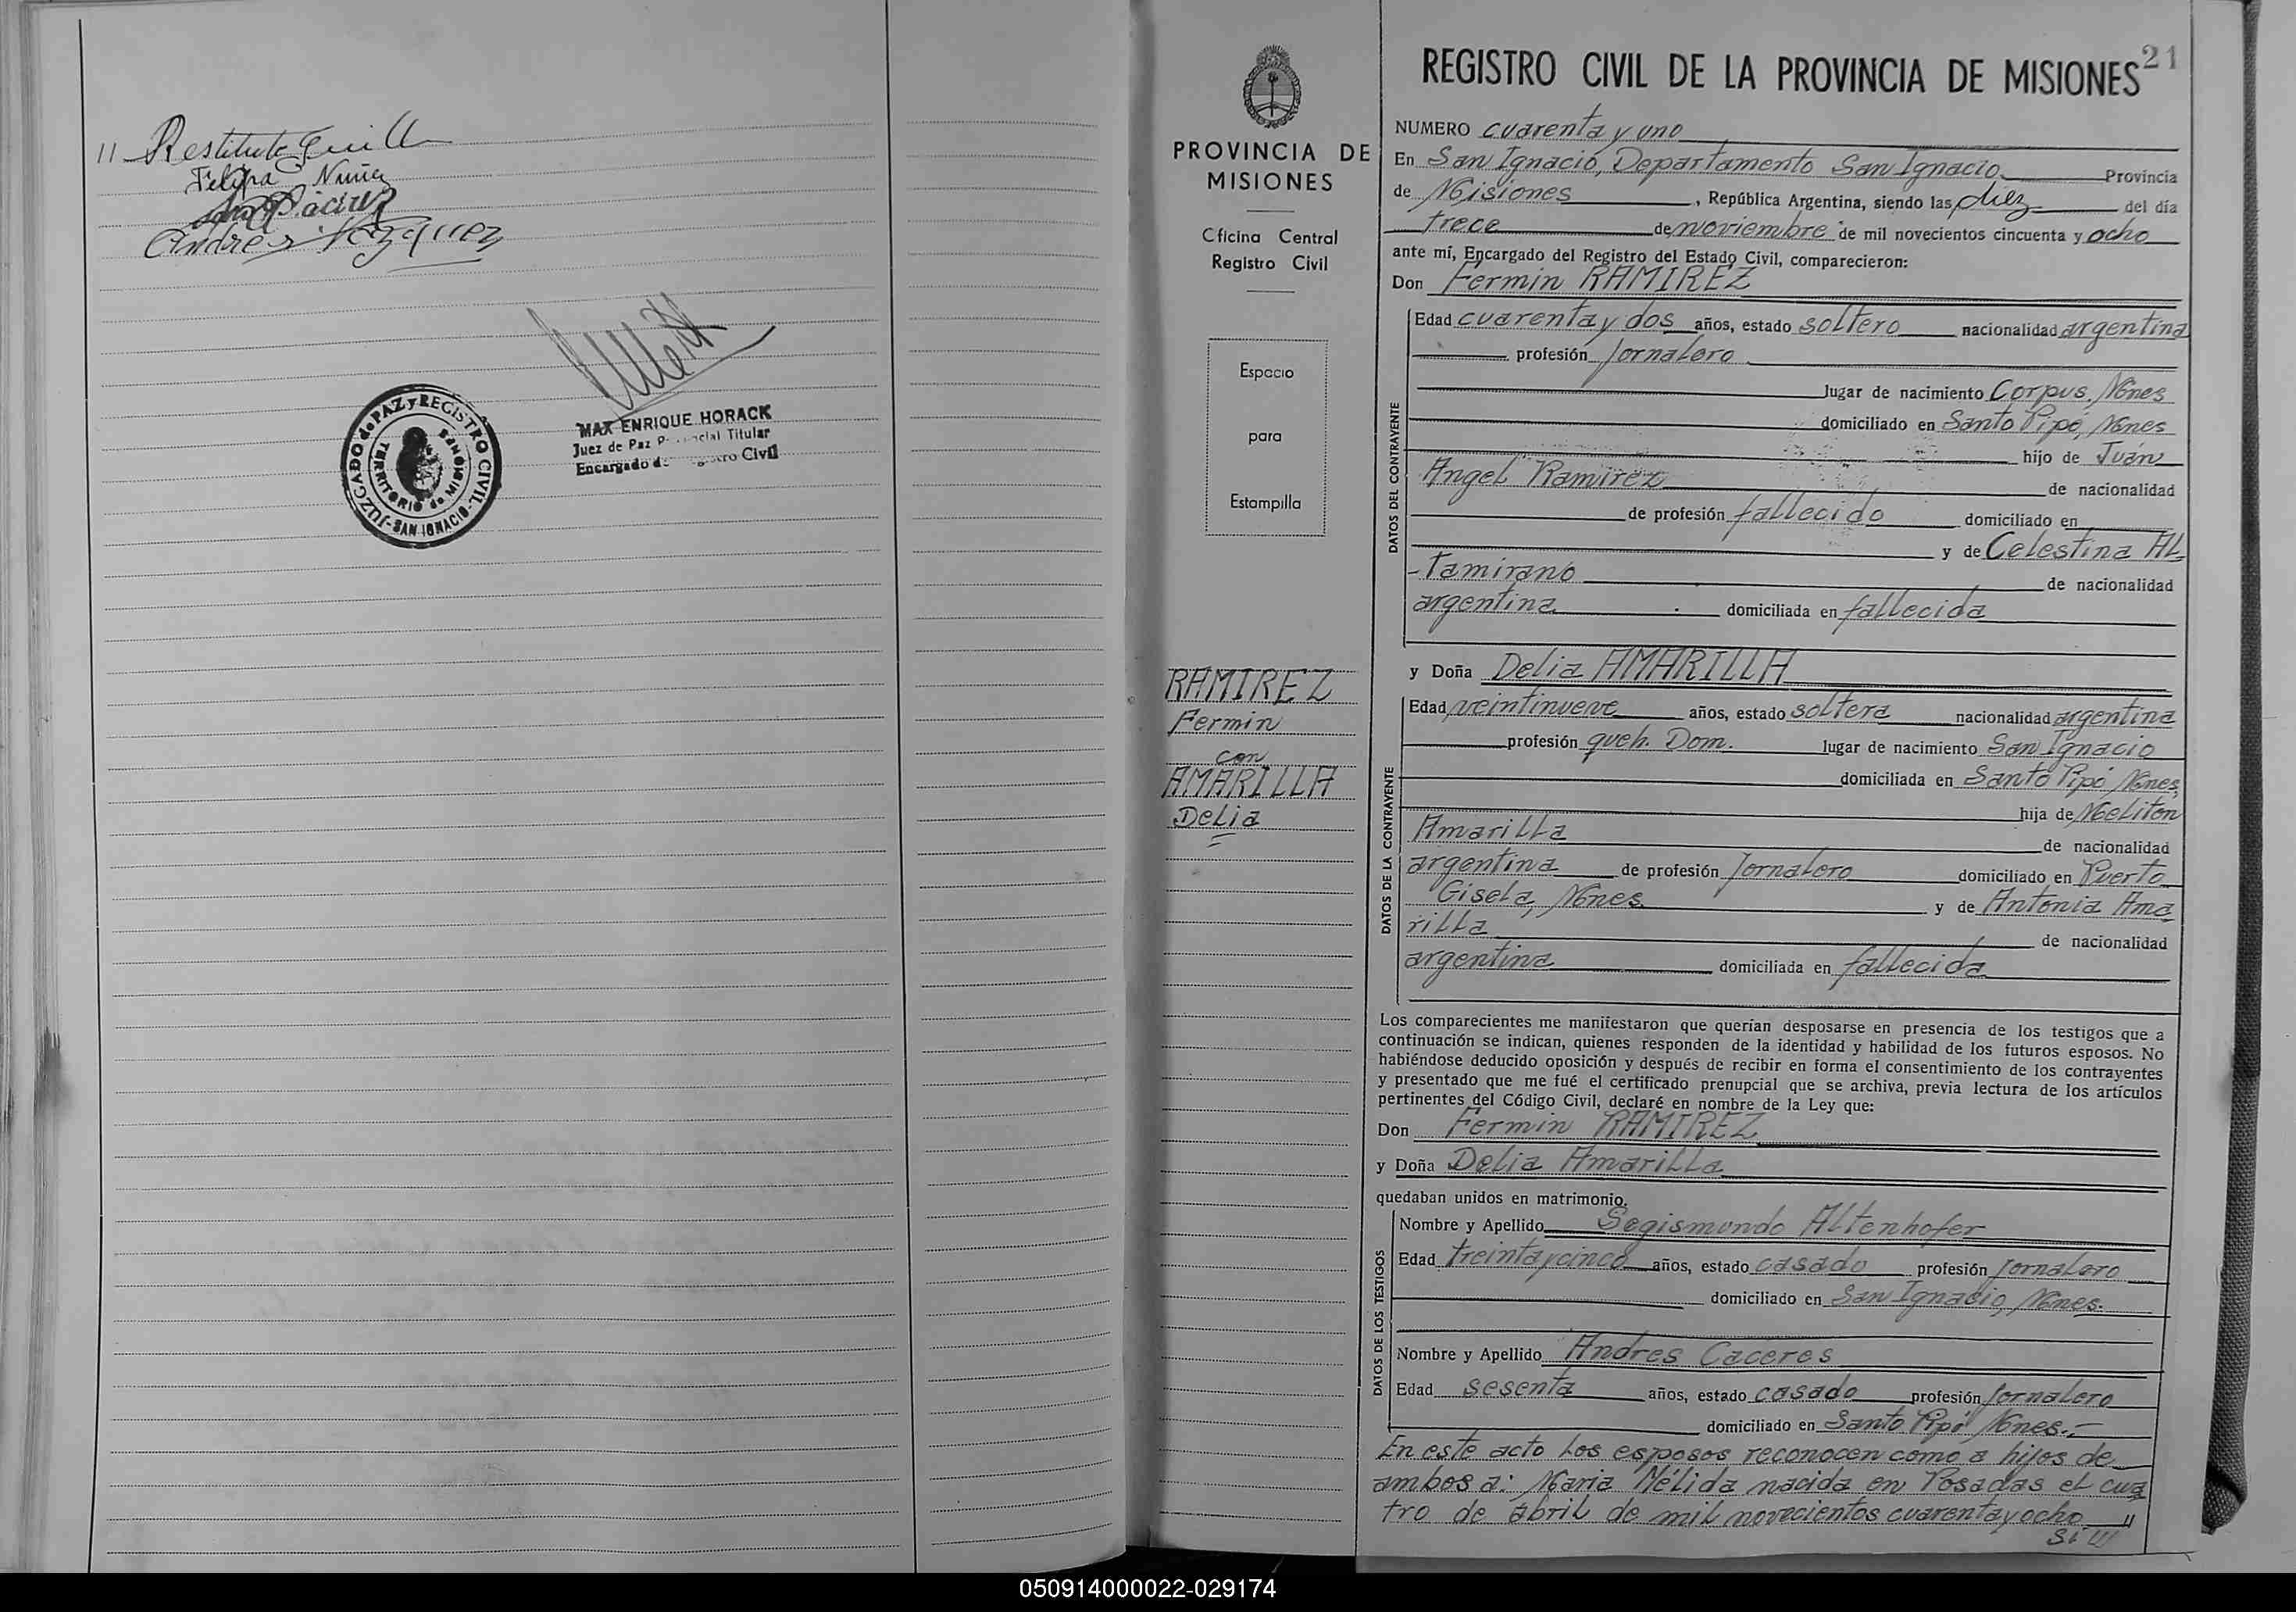 11 Restituto
Felipa Nuñez
Andres Vazquez
JUZGADO de PAZ y REGISTRO CIVIL - SAN IGNACIO -
TERRITORIO de MISIONES
MAX ENRIQUE HORACK
Juez de Paz Titular
Encargado Civil
PROVINCIA DE
MISIONES
Oficina Central
Registro Civil
Espacio
para
Estampilla
RAMIREZ
Fermin
con
AMARILLA
Delia
21
REGISTRO CIVIL DE LA PROVINCIA DE MISIONES
NUMERO cuarenta y uno
En San Ignacio, Departamento San Ignacio Provincia
de Misiones, República Argentina, siendo las diez del día
trece de noviembre de mil novecientos cincuenta y ocho
ante mí, Encargado del Registro del Estado Civil, comparecieron:
Don Fermin RAMIREZ
DATOS DEL CONTRAYENTE
Edad cuarenta y dos años, estado soltero nacionalidad argentina
profesión Jornalero
lugar de nacimiento Corpus, Mnes
domiciliado en Santo Pipó, Mnes
hijo de Juan
Angel Ramirez de nacionalidad
de profesión fallecido domiciliado en
y de Celestina Al-
-tamirano de nacionalidad
argentina domiciliada en fallecida
y Doña Delia AMARILLA
DATOS DE LA CONTRAYENTE
Edad veintinueve años, estado soltera nacionalidad argentina
profesión queh. Dom. lugar de nacimiento San Ignacio
domiciliada en Santo Pipó Mnes,
hija de Meliton
Amarilla de nacionalidad
argentina de profesión Jornalero domiciliado en Puerto
Gisela, Mnes. y de Antonia Ama
rilla de nacionalidad
argentina domiciliada en fallecida
Los comparecientes me manifestaron que querían desposarse en presencia de los testigos que a
continuación se indican, quienes responden de la identidad y habilidad de los futuros esposos. No
habiéndose deducido oposición y después de recibir en forma el consentimiento de los contrayentes
y presentado que me fué el certificado prenupcial que se archiva, previa lectura de los artículos
pertinentes del Código Civil, declaré en nombre de la Ley que:
Don Fermin RAMIREZ
y Doña Delia Amarilla
quedaban unidos en matrimonio.
DATOS DE LOS TESTIGOS
Nombre y Apellido Segismundo Altenhofer
Edad treinta y cinco años, estado casado profesión Jornalero
domiciliado en San Ignacio, Mnes.
Nombre y Apellido Andres Caceres
Edad sesenta años, estado casado profesión Jornalero
domiciliado en Santo Pipó Mnes.-
En este acto los esposos reconocen como a hijos de
ambos a: Maria Nélida nacida en Posadas el cua
tro de abril de mil novecientos cuarenta y ocho "
050914000022-029174